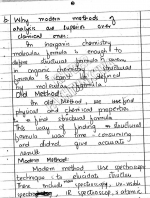 b. Why modern methods of
analysis are superior over
chemical ones:
In inorganic chemistry
molecular formula is enough to
define structural formula &
in organic chemistry structural
formula can't be defined
by molecular formula.
Old Method:
In old Method, we use
physical and chemical properties
to find structural formula
This way of finding structural
formula was time consuming
and didn't give accurate
result.
Modern Method:
Modern method use spectroscopic
technique to elucidate structure
These include spectroscopy, uv-visible
IR spectroscopy, &